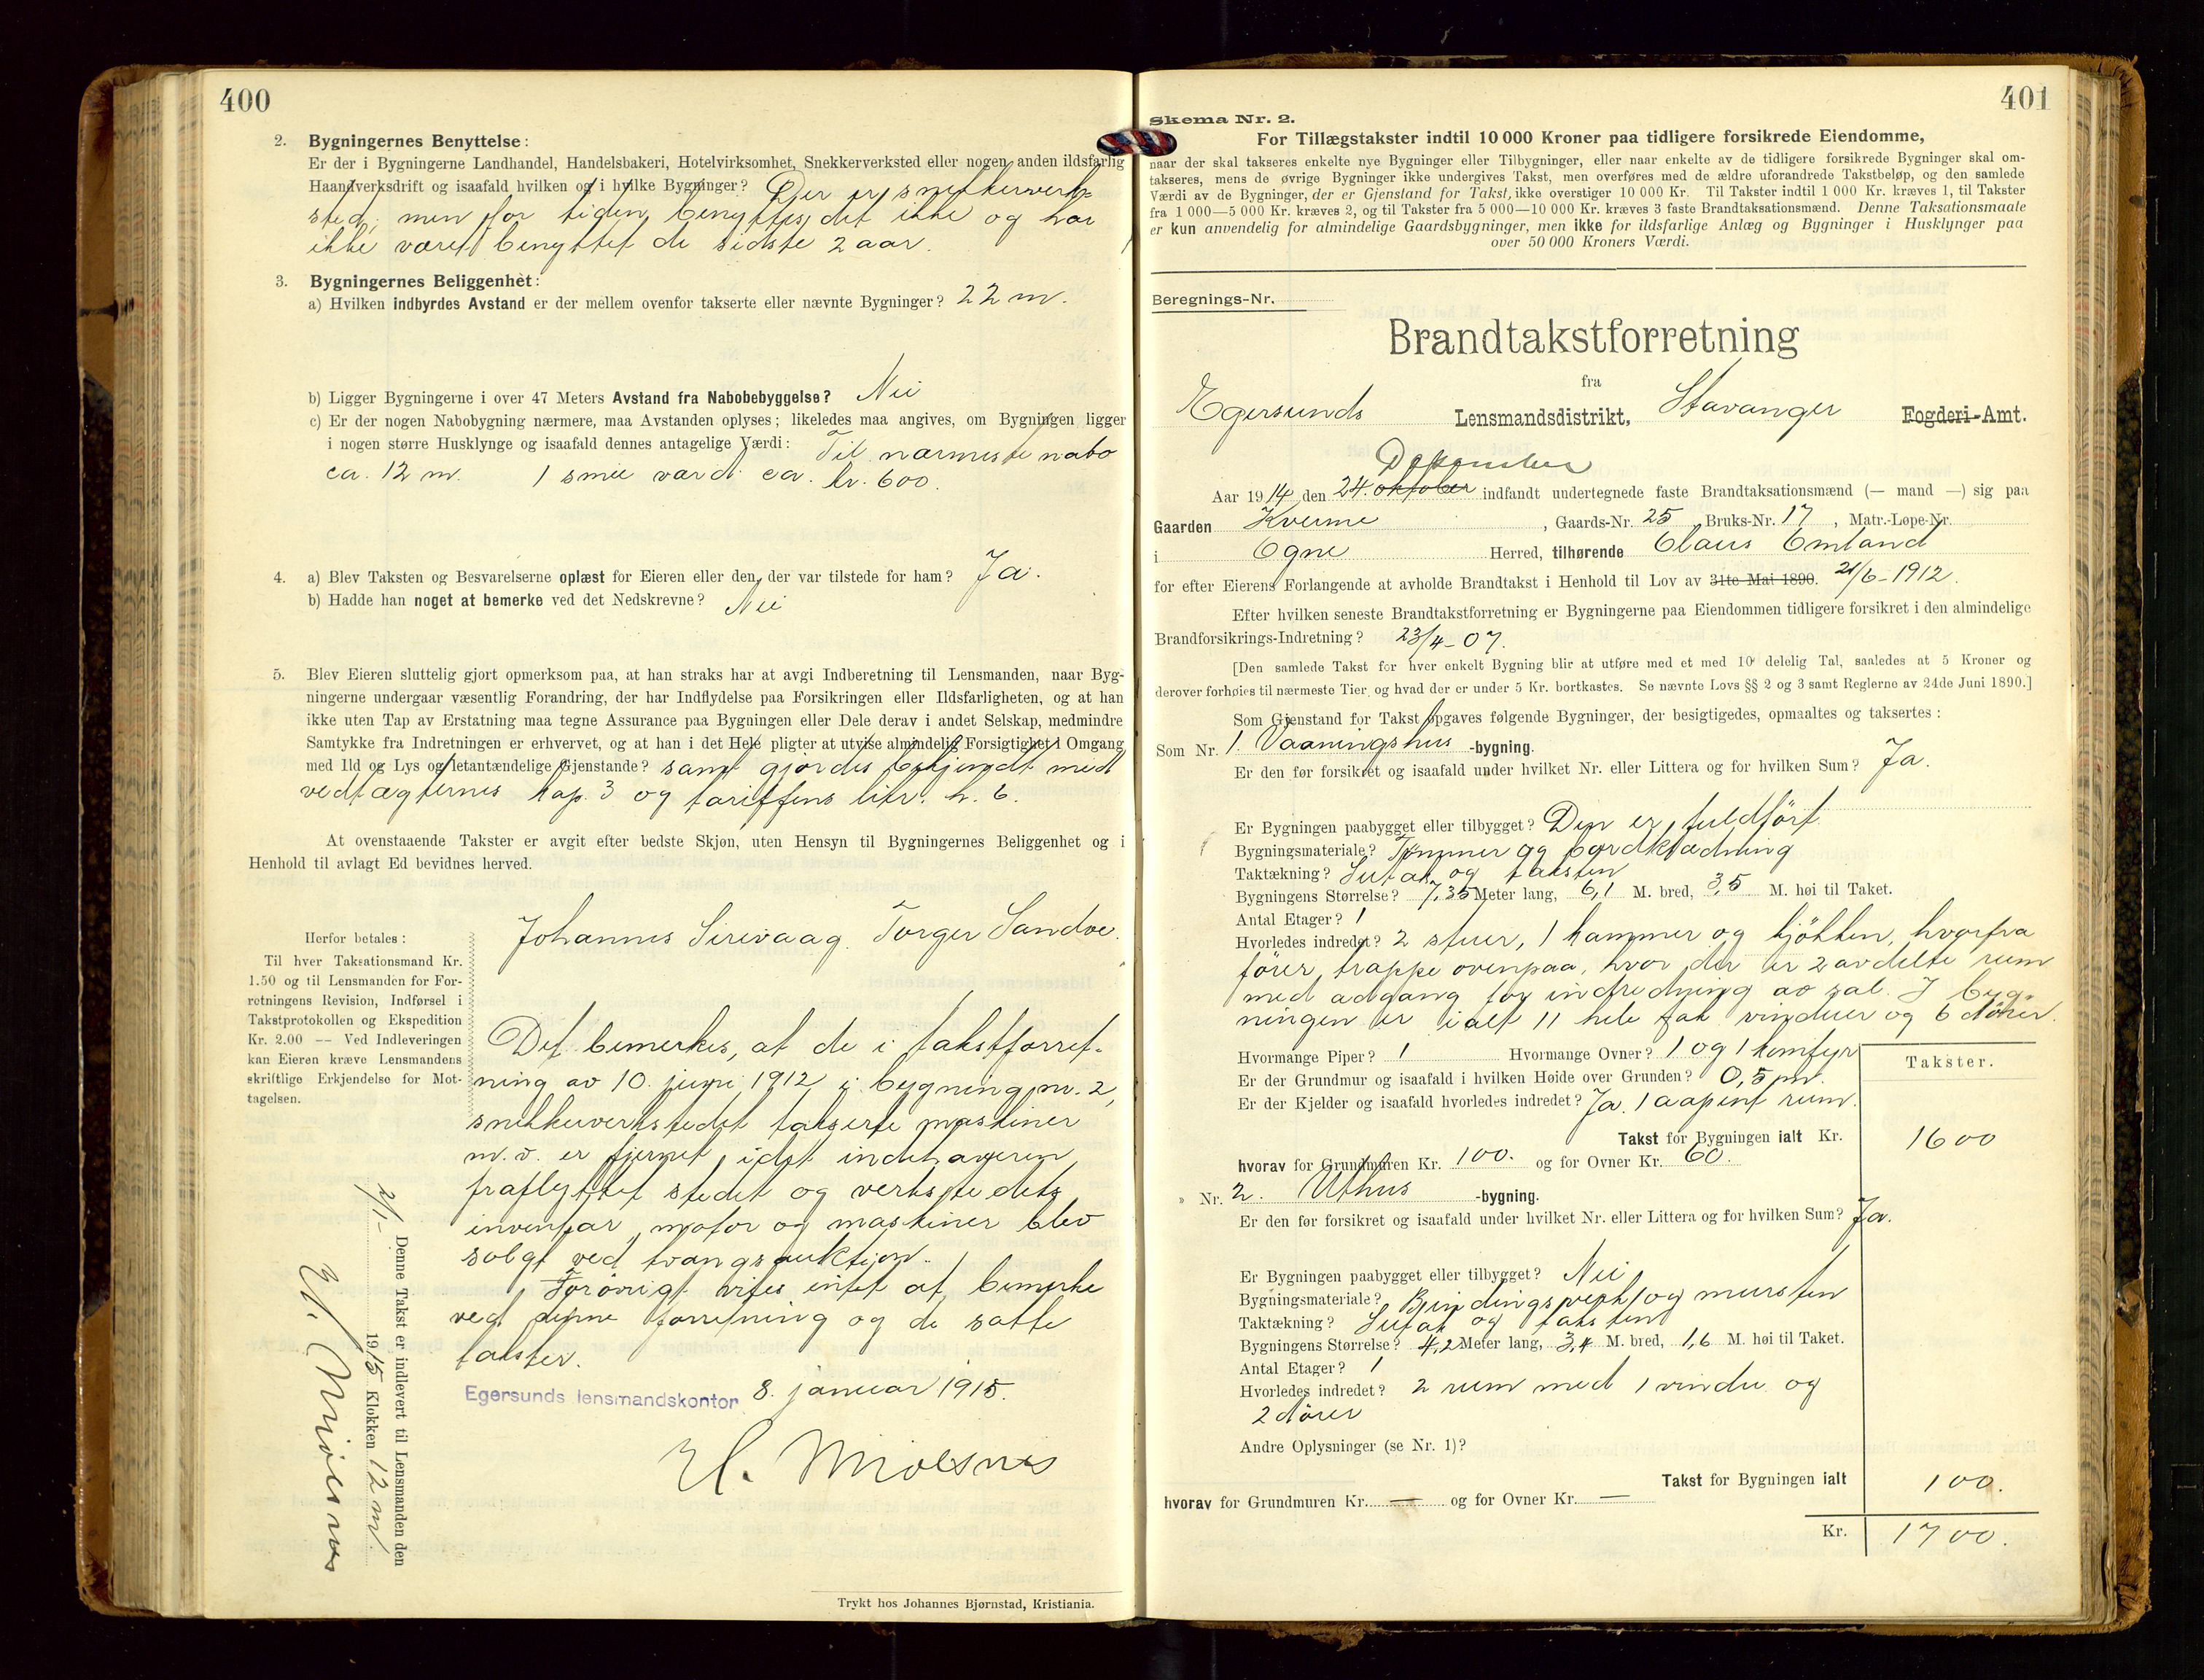 400
2. Bygningernes Benyttelse:
Er der i Bygningerne Landhandel, Handelsbakeri, Hotelvirksomhet, Snekkerverksted eller nogen anden ildsfarlig
Haandverksdrift og isaafald hvilken og i hvilke Bygninger? Der er snekkerverk-
sted, men for tiden benyttes det ikke og har
ikke været benyttet de sidste 2 aar.
3. Bygningernes Beliggenhet:
a) Hvilken indbyrdes Avstand er der mellem ovenfor takserte eller nævnte Bygninger? 22 m.
b) Ligger Bygningerne i over 47 Meters Avstand fra Nabobebyggelse? Nei
c) Er der nogen Nabobygning nærmere, maa Avstanden oplyses; likeledes maa angives, om Bygningen ligger
i nogen større Husklynge og isaafald dennes antagelige Værdi: Til nærmeste nabo
ca. 12 m. 1 smie værdi ca. kr. 600.
4. a) Blev Taksten og Besvarelserne oplæst for Eieren eller den, der var tilstede for ham? Ja.
b) Hadde han noget at bemerke ved det Nedskrevne? Nei
5. Blev Eieren sluttelig gjort opmerksom paa, at han straks har at avgi Indberetning til Lensmanden, naar Byg-
ningerne undergaar væsentlig Forandring, der har Indflydelse paa Forsikringen eller Ildsfarligheten, og at han
ikke uten Tap av Erstatning maa tegne Assurance paa Bygningen eller Dele derav i andet Selskap, medmindre
Samtykke fra Indretningen er erhvervet, og at han i det Hele pligter at utvise almindelig Forsigtighet i Omgang
med Ild og Lys og letantændelige Gjenstande? samt gjordes bekjendt med
vedtægternes kap. 3 og tariffens litr. h. 6.
At ovenstaaende Takster er avgit efter bedste Skjøn, uten Hensyn til Bygningernes Beliggenhet og i
Henhold til avlagt Ed bevidnes herved.
Johannes Sirevaag. Torger Sandve.
Herfor betales:
Til hver Taksationsmand Kr.
1.50 og til Lensmanden for For-
retningens Revision, Indførsel i
Takstprotokollen og Ekspedition
Kr. 2.00 — Ved Indleveringen
kan Eieren kræve Lensmandens
skriftlige Erkjendelse for Mot-
tagelsen.
Det bemerkes, at de i takstforret-
ning av 10. juni 1912 i bygning nr. 2,
snekkerverkstedet takserte maskiner
m.v. er fjernet, idet indehaveren
fraflyttet stedet og verkstedets
inventar, motor og maskiner blev
solgt ved tvangsauktion.
Forøvrigt vites intet at bemerke
ved denne forretning og de satte
takster.
Egersunds lensmandskontor 8. januar 1915.
H. Mjølsnes
Denne Takst er indlevert til Lensmanden den
2/1- 1915 Klokken 12 m.
H. Mjølsnes
Trykt hos Johannes Bjørnstad, Kristiania.
401
Skema Nr. 2.
For Tillægstakster indtil 10 000 Kroner paa tidligere forsikrede Eiendomme,
naar der skal takseres enkelte nye Bygninger eller Tilbygninger, eller naar enkelte av de tidligere forsikrede Bygninger skal om-
takseres, mens de øvrige Bygninger ikke undergives Takst, men overføres med de ældre uforandrede Takstbeløp, og den samlede
Værdi av de Bygninger, der er Gjenstand for Takst, ikke overstiger 10 000 Kr. Til Takster indtil 1 000 Kr. kræves 1, til Takster
fra 1 000—5 000 Kr. kræves 2, og til Takster fra 5 000—10 000 Kr. kræves 3 faste Brandtaksationsmænd. Denne Taksationsmaate
er kun anvendelig for almindelige Gaardsbygninger, men ikke for ildsfarlige Anlæg og Bygninger i Husklynger paa
over 50 000 Kroners Værdi.
Beregnings-Nr.
Brandtakstforretning
fra
Egersunds Lensmandsdistrikt, Stavanger Fogderi-Amt.
Desember
Aar 1914 den 24. oktober indfandt undertegnede faste Brandtaksationsmænd (— mand —) sig paa
Gaarden Kverme, Gaards-Nr. 25 Bruks-Nr. 17, Matr.-Løpe-Nr.
i Ogne Herred, tilhørende Claus Omland
for efter Eierens Forlangende at avholde Brandtakst i Henhold til Lov av 31te Mai 1890. 21/6-1912.
Efter hvilken seneste Brandtakstforretning er Bygningerne paa Eiendommen tidligere forsikret i den almindelige
Brandforsikrings-Indretning? 23/4-07.
[Den samlede Takst for hver enkelt Bygning blir at utføre med et med 10 delelig Tal, saaledes at 5 Kroner og
derover forhøies til nærmeste Tier og hvad der er under 5 Kr. bortkastes. Se nævnte Lovs §§ 2 og 3 samt Reglerne av 24de Juni 1890.]
Som Gjenstand for Takst opgaves følgende Bygninger, der besigtigedes, opmaaltes og taksertes:
Som Nr. 1. Vaaningshus -bygning.
Er den før forsikret og isaafald under hvilket Nr. eller Littera og for hvilken Sum? Ja.
Er Bygningen paabygget eller tilbygget? Den er fuldført
Bygningsmateriale? Tømmer og bordklædning
Taktækning? Sutak og taksten
Bygningens Størrelse? 7,35 Meter lang, 6,1 M. bred, 3,5 M. høi til Taket.
Antal Etager? 1
Hvorledes indredet? 2 stuer, 1 kammer og kjøkken, hvorfra
fører trappe ovenpaa, hvor der er 2 avdelte rum
med adgang for indredning av sal. I byg-
ningen er ialt 11 hele fak vinduer og 6 dører.
Hvormange Piper? 1 Hvormange Ovner? 1 og 1 komfyr
Er der Grundmur og isaafald i hvilken Høide over Grunden? 0,5 m.
Er der Kjelder og isaafald hvorledes indredet? Ja. 1 aapent rum.
Takster.
Takst for Bygningen ialt Kr. 1600
hvorav for Grundmuren Kr. 100. og for Ovner Kr. 60.
» Nr. 2. Uthus -bygning.
Er den før forsikret og isaafald under hvilket Nr. eller Littera og for hvilken Sum? Ja.
Er Bygningen paabygget eller tilbygget? Nei
Bygningsmateriale? Bindingsverk og mursten
Taktækning? Sutak og taksten
Bygningens Størrelse? 4,2 Meter lang, 3,4 M. bred, 1,6 M. høi til Taket.
Antal Etager? 1
Hvorledes indredet? 2 rum med 1 vindu og
2 dører
Andre Oplysninger (se Nr. 1)?
Takst for Bygningen ialt 100.
hvorav for Grundmuren Kr. — og for Ovner Kr. —
Kr. 1700.